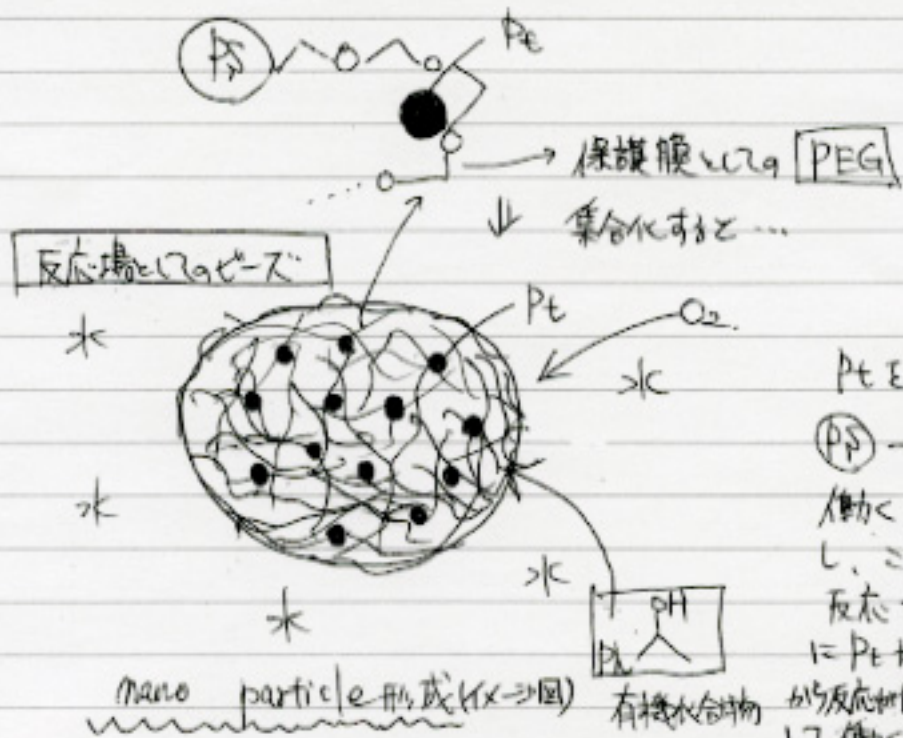 PS
O
O
Pt
O
O
→ 保護膜としての PEG
⇓ 集合化すると…
反応場としてのビーズ
Pt
O2
水
水
Pt を
PS -
水
働く
水
し、こ
反応
に Pt
OH
Ph
nano particle 形成(イメージ図)
有機化合物
から反応
して働く